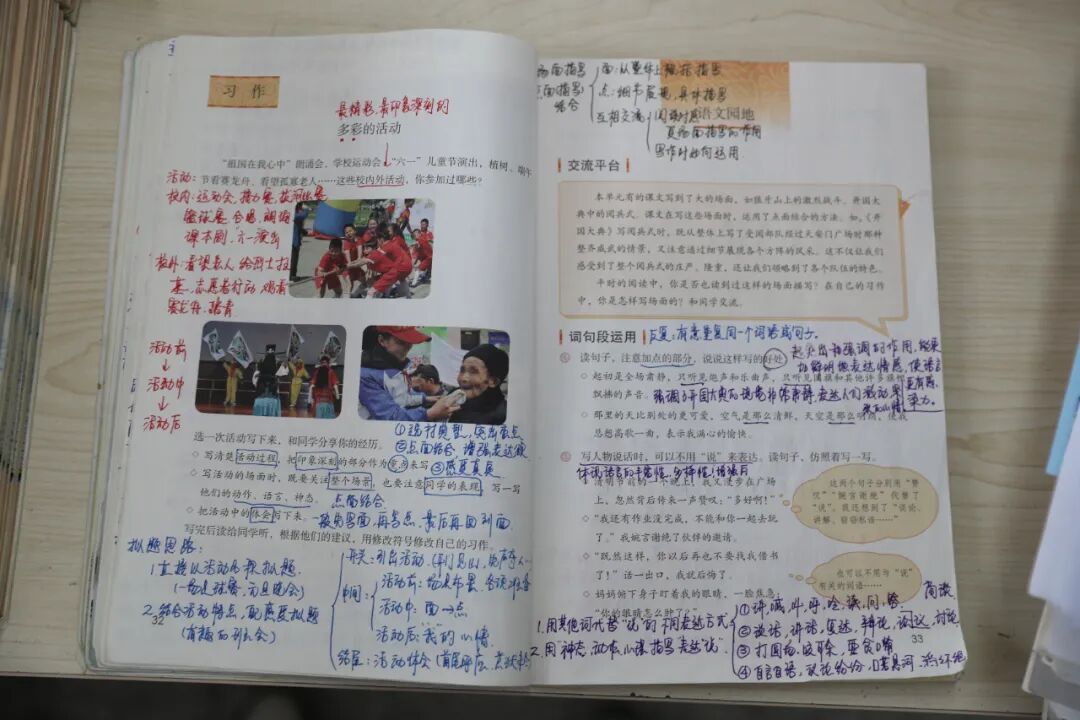 习作
最精彩、最印象深刻的
多彩的活动
“祖国在我心中”朗诵会、学校运动会、“六一”儿童节演出，植树、端午
节看赛龙舟、看望孤寡老人……这些校内外活动，你参加过哪些？
活动：
校内：运动会、接力赛、拔河比赛
篮球赛、合唱、朗诵
课本剧、六一演出
校外：看望老人、给烈士扫
墓、志愿者行动、观看
赛龙舟、踏青
活动前
活动中
活动后
选一次活动写下来，和同学分享你的经历。
①选材典型，突出重点
②点面结合，增强表达效
写清楚活动过程，把印象深刻的部分作为重点来写。
③感受真实
写活动的场面时，既要关注整个场景，也要注意同学的表现，写一写
他们的动作、语言、神态。
点面结合
把活动中的体会写下来。
一般先写面，再写点，最后再回到面。
写完后读给同学听，根据他们的建议，用修改符号修改自己的习作。
拟题思路：
1.直接以活动名称拟题。
(一场足球赛、元旦晚会)
2.结合活动特点、观感受拟题
(有趣的到会)
开头：引出活动。(开门见山、
中间：
活动前：场地布置、各项准备
活动中：面→点
活动后：我的心情
结尾：活动体会(首尾呼应、
32
场面描写
点面描写
结合
面：从整体上概括描写
点：细节展现，具体描写
互相交流
阅读时感
受场面描写的作用
写作时如何运用
语文园地
交流平台
本单元有的课文写到了大的场面，如狼牙山上的激烈战斗、开国大
典中的阅兵式。课文在写这些场面时，运用了点面结合的方法。如，《开
国大典》写阅兵式时，既从整体上写了受阅部队经过天安门广场时那种
整齐威武的情景，又注意通过细节展现各个方阵的风采。这不仅让我们
感受到了整个阅兵式的庄严、隆重，还让我们领略到了各个队伍的特色。
平时的阅读中，你是否也读到过这样的场面描写？在自己的习作
中，你是怎样写场面的？和同学交流。
词句段运用
反复：有意重复同一个词语或句子。
读句子，注意加点的部分，说说这样写的好处。
起突出和强调的作用，能更
加鲜明地表达情感，使语言
更有感
染力。
起初是全场肃静，只听见炮声和乐曲声，只听见国旗和其他许多旗帜
飘拂的声音。
强调了开国大典的现场非常肃静，表达人们激动
那里的天比别处的更可爱，空气是那么清鲜，天空是那么明朗，使我
总想高歌一曲，表示我满心的愉快。
写人物说话时，可以不用“说”来表达。读句子，仿照着写一写。
体现语言的丰富性、多样性、情境后
清明节前的一个晚上，我又漫步在广场
上，忽然背后传来一声赞叹：“多好啊！”
“我还有作业没完成，不能和你一起去玩
了。”我婉言谢绝了伙伴的邀请。
“既然这样，你以后再也不要找我借书
了！”话一出口，我就后悔了。
妈妈俯下身子盯着我的眼睛，一脸焦急：
“你的眼睛怎么肿了？”
这两个句子分别用“赞
叹”“婉言谢绝”代替了
“说”，我还想到了“谈论、
讲解、窃窃私语……”
也可以不用与“说”
有关的词语……
1.用其他词代替“说”的不同表达方式
2.用“神态、动作、心理描写表达“说”。
①讲、喊、叫、呼、谈、问、答
商谈
②说话、讲话、复述、辩论、议论、讨论
③打圆场、
④自言自语、议论纷纷、口若悬河、
33